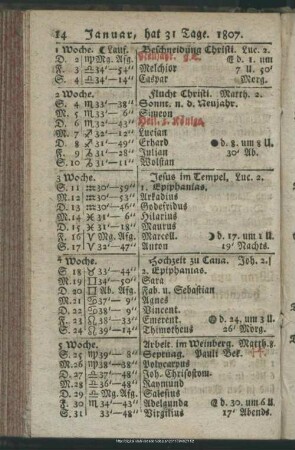 14 Januar, hat 31 Tage. 1807.
1 Woche. ☾ Lauf. Beschneidung Christi. Luc. 2.
D. 2 ♍ Mg. Afg. d. 1. um
F. 3 ♎ 34'—54" Melchior 7 U. 50'
S. 4 ♎ 34'—14" Caspar Morg.
2 Woche. Flucht Christi. Matth. 2.
S. 4 ♏ 33'—38" Sonnt. n. d. Neujahr.
M. 5 ♏ 33'—6" Simeon
D. 6 ♏ 32'—43" Heil. 3. Könige.
M. 7 ♐ 32'—12" Lucian
D. 8 ♐ 31'—49" Erhard ● d. 8. um 8 U.
F. 9 ♑ 31'—26" Julian 30' Ab.
S. 10 ♑ 31'—11" Wolstan
3 Woche. Jesus im Tempel. Luc. 2.
S. 11 ♒ 30'—59" 1. Epiphanias.
M. 12 ♒ 30'—57" Arkadius
D. 13 ♒ 30'—46" Godefridus
M. 14 ♓ 31'—6" Hilarius
D. 15 ♓ 31'—18" Maurus
F. 16 ♈ Mg. Afg. Marcell. ☽ d. 17. um 1 U.
S. 17 ♈ 32'—47" Anton 19' Nachts.
4 Woche. Hochzeit zu Cana. Joh. 2.
S 18 ♉ 33'—44" 2. Epiphanias.
M. 19 ♊ 34'—50" Sara
D. 20 ♊ Ab. Afg. Fab. u. Sebastian
M. 21 ♋ 37'—9" Agnes
D. 22 Vincent.
F. 23 ♌ 38'—33" Emerent. d. 24. um 3 U.
S. 24 ♌ 39'—14" Thimotheus 26' Morg.
5 Woche. Arbeit. im Weinberg. Matth. 8.
S. 25 ♍ 39'—8" Septuag. Pauli Bek.
M. 26 ♍ 38'—38" Polycarpus
D. 27 ♎ 37'—48" Joh. Chrisostom.
M. 28 ♎ 36'—48" Raymund
D. 29 ♏ Mg. Afg. Salesius
F. 30 ♏ 34'—43" Adelgunda d. 31. um 6 U.
S. 31 33'—48" Virgilius 17' Abends.